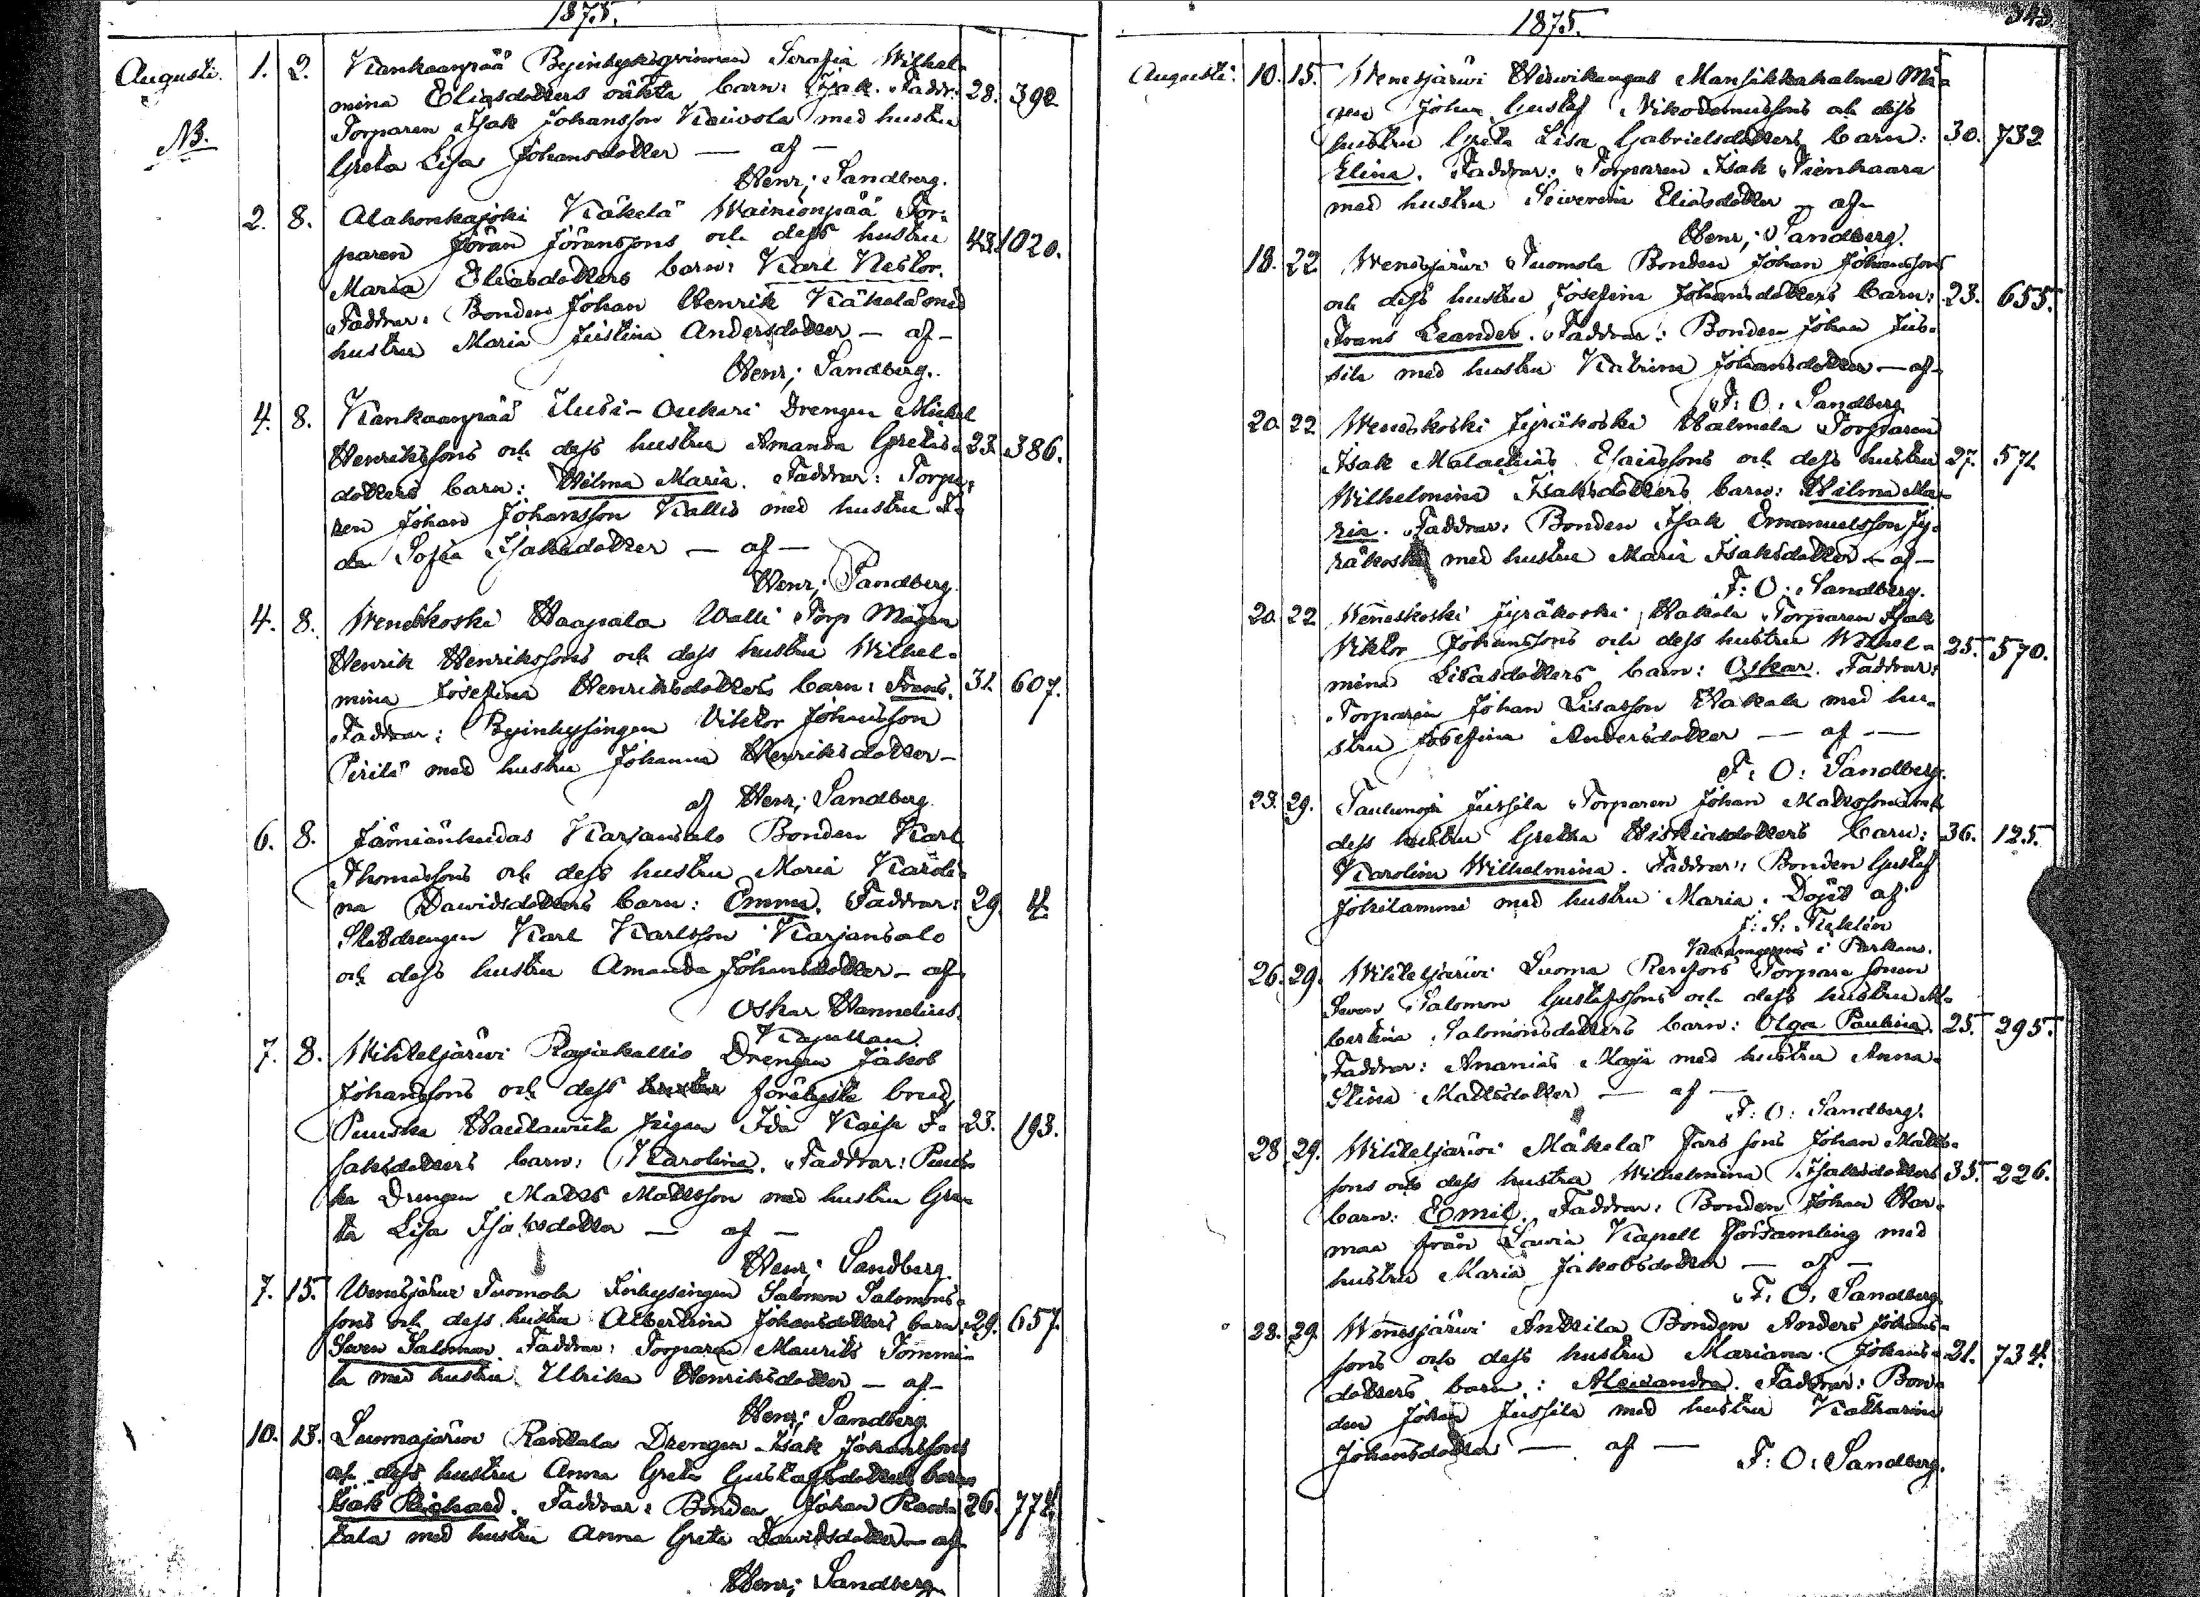 1875.
Augusti. 1. 2. Kankaanpää Byinhyseqvinnan Serafia Wilhel-
mina Eliasdotters oäkta barn: Isak. Faddr: 28. 392
NB. Torparen Isak Johansson Koivola med hustru
Greta Lisa Johansdotter — af —
Henr; Sandberg.
2. 8. Alahonkajoki Käkelä Wainionpää Tor-
paren Jöran Jöranssons och dess hustru 43. 1020.
Maria Eliasdotters barn: Karl Nestor.
Faddrar: Bonden Johan Henrik Käkelä med
hustru Maria Justina Andersdotter — af —
Henr; Sandberg.
4. 8. Kankaanpää Uusi-Oukari Drengen Mickel
Henrikssons och dess hustru Amanda Gretas- 23. 386.
dotters barn: Wilma Maria. Faddrar: Torpa-
ren Johan Johansson Kallio med hustru I-
da Sofia Isaksdotter — af —
Henr; Sandberg.
4. 8. Weneskoski Haapala Walli Torp Mågen
Henrik Henrikssons och dess hustru Wilhel-
mina Josefina Henriksdotters barn: Frans. 31. 607.
Faddrar: Byinhysingen Viktor Johansson
Perilä med hustru Johanna Henriksdotter —
af Henr; Sandberg.
6. 8. Jämiänkeidas Karjansalo Bonden Karl
Thomassons och dess hustru Maria Karoli-
na Davidsdotters barn: Emma. Faddrar: 29. 4.
Statdrengen Karl Karlsson Karjansalo
och dess hustru Amanda Johansdotter — af
Oskar Hannelius.
Kapellan.
7. 8. Wihteljärwi Rajakallio Drengen Jakob
Johanssons och dess hustru förelyste brud,
Punska Hautawiita Pigan Ida Kaisa I- 23. 193.
saksdotters barn: Karolina. Faddrar: Puus-
ka Drengen Matts Mattsson med hustru Gre-
ta Lisa Isaksdotter — af —
Henr; Sandberg.
7. 15. Wenesjärwi Tuomola Inhysingen Salomon Salomons-
sons och dess hustru Albertina Johansdotters barn: 29. 657.
Sven Salomon. Faddrar: Torparen Maurits Tommi-
la med hustru Ulrika Henriksdotter — af —
Henr; Sandberg
10. 13. Luomajärwi Rantala Drengen Isak Johanssons
och dess hustru Anna Greta Gustafsdotters barn
Isak Richard. Faddrar: Bonden Johan Ran- 26. 774.
tala med hustru Anna Greta Davidsdotter — af
Henr; Sandberg
1875. 343.
Augusti. 10. 15. Wenesjärwi Hirwikangas Mansikkahalme Må-
gen Johan Gustaf Nikodemussons och dess
hustru Greta Lisa Gabrielsdotters barn: 30. 732
Elina. Faddrar: Torparen Isak Pienhaara
med hustru Severin Eliasdotter — af —
Henr; Sandberg.
18. 22 Wenesjärwi Tuomola Bonden Johan Johanssons
och dess hustru Josefina Johansdotters barn: 23. 655.
Frans Leander. Faddrar: Bonden Johan Jus-
sila med hustru Katrina Johansdotter — af —
F: O: Sandberg
20. 22 Weneskoski Jyräkoski Halmela Torparen
Isak Malachias Esaiassons och dess hustru 27. 571
Wilhelmina Isaksdotters barn: Wilma Ma-
ria. Faddrar: Bonden Isak Emanuelsson Jy-
räkoski med hustru Maria Isaksdotter — af —
F: O: Sandberg.
20. 22 Weneskoski Jyräkoski Hakala Torparen Isak
Viktor Johanssons och dess hustru Wilhel- 25. 570.
mina Lisasdotters barn: Oskar. Faddrar:
Torparen Johan Lisasson Hakala med hu-
stru Josefina Andersdotter — af —
F: O: Sandberg.
23. 29. Jussila Torparen Johan Mattssons och
dess hustru Gretha Hiskiasdotters barn: 36. 125.
Karolina Wilhelmina. Faddrar: Bonden Gustaf
Johilammi med hustru Maria. Döpt af
i Parkano.
26. 29. Wihteljärwi Luoma Torpare sonen
Sven Salomon Gustafssons och dess hustru Al-
bertina Salomonsdotters barn: Olga Paulina. 25. 295.
Faddrar: Ananias Maja med hustru Anna
Stina Mattsdotter — af —
F: O: Sandberg.
28 29. Wihteljärwi Mäkelä Fars sons Johan Matts-
sons och dess hustru Wilhelmina Isaksdotters 33. 226.
barn: Emil. Faddrar: Bonden Johan Har-
maa från Lavia Kapell Församling med
hustru Maria Jakobsdotter — af —
F: O: Sandberg
28. 29. Wenesjärwi Anttila Bonden Anders Johans-
sons och dess hustru Mariana Johans- 21. 734.
dotters barn: Alexandra. Faddrar: Bon-
den Johan Jussila med hustru Katharina
Johansdotter — af —
F: O: Sandberg.